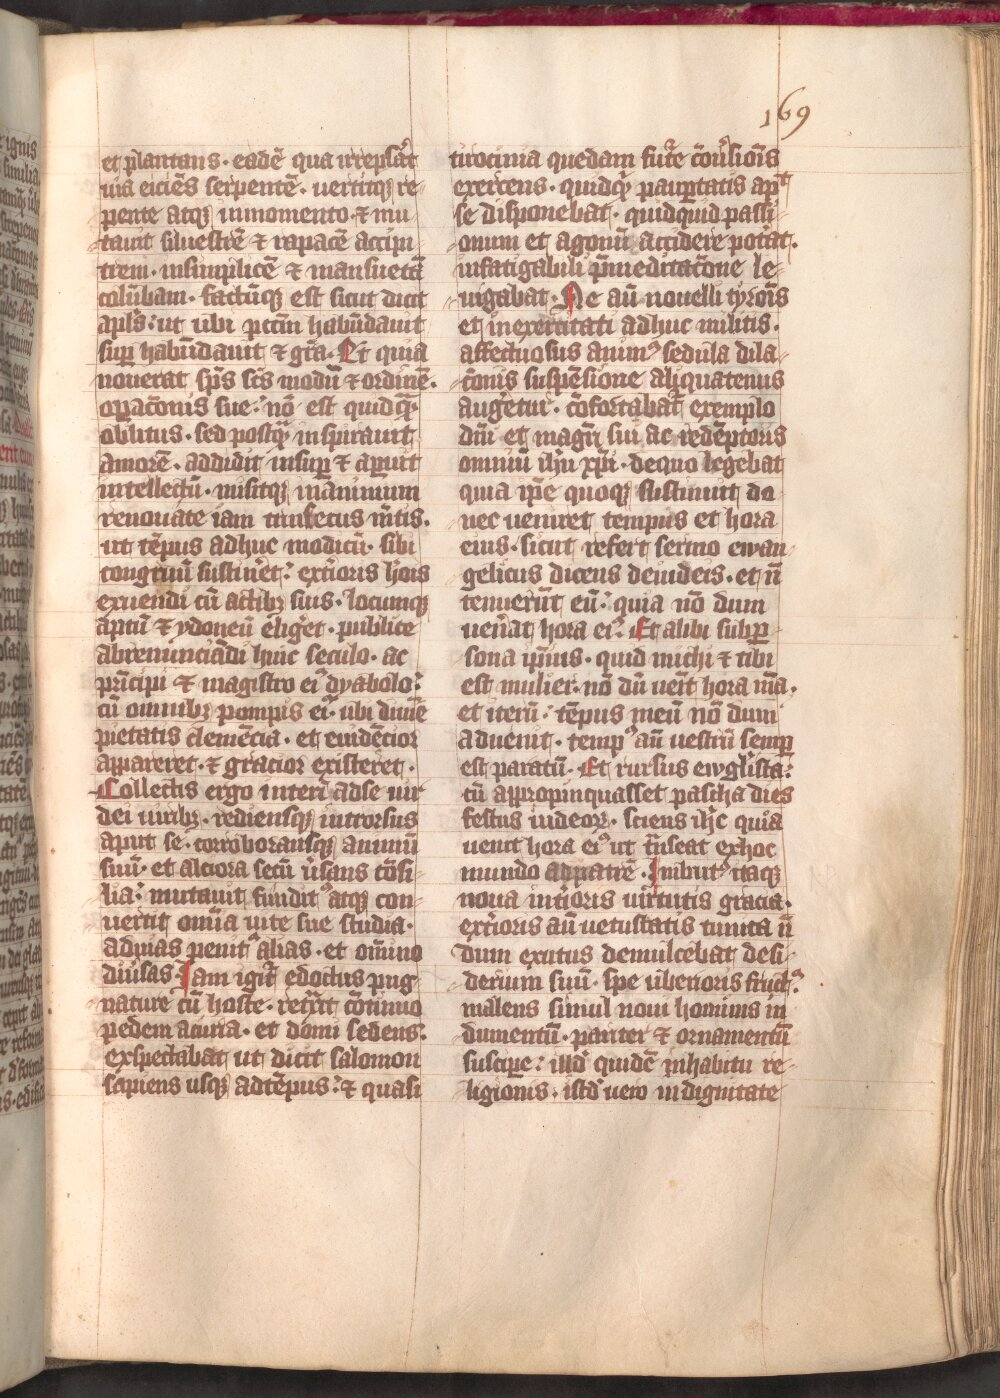 169
et plantans · eadē qua irrepsāt
uia eiciēs serpentē · uertitqꝫ re
pente atqꝫ inmomento · ⁊ mu
tauit siluestrē ⁊ rapacē accipi
trem · insimplicē ⁊ mansuetā
colūbam · factūqꝫ est sicut dicit
apl̄s : ut ubi pctm̄ habūdauit
suꝑ habūdauit ⁊ gr̄a · Et quia
nouerat sp̄s sc̄s modū ⁊ ordinē ·
oꝑac̄onis sue : nō est quidq̄ꝫ
oblitus · sed postq̄ꝫ inspirauit
amorē · addidit insuꝑ ⁊ aꝑuit
intellectū · misitqꝫ inānimum
renouate iam trinsecus mētis ·
ut tēpus adhuc modicū · sibi
congruū sustin̄et : exterioris hoīs
exuendi cū actibꝫ suis · locumqꝫ
aptū ⁊ ydoneū eliḡet · publice
abrenunciādi huic seculo · ac
prīcipi ⁊ magistro eiꝰ dyabolo :
cū omnibꝫ pompis eiꝰ · ubi diuīe
pietatis clemēcia · et euidēcior
appareret · ⁊ gracior existeret ·
Collectis ergo interī adse uir
dei uiribꝫ · rediensqꝫ introrsus
aput se · corroboransqꝫ animū
suū · et alciora secū ūsans cōsi
lia : mutauit funditꝰ atqꝫ con
uertit omīa uite sue studia ·
aduias penitꝰ alias · et om̄ino
diūsas · Iam igit᷑ edoctus pug
nature cū hoste · ret͛xit cōtinuo
pedem acuria · et domi sedens :
exspectabat ut dicit salomon
sapiens usqꝫ adtēpus : ⁊ quasi
tirocinia quedam futūe cōūsionīs
exercens · quidq̄ꝫ pauꝑtatis apᵗ
se disponebat · quidquid passi
onum et agonū accidere potāt ·
infatigabili p̄meditac̄one le
uigabat · Ne aū nouelli tyronīs
et inexercitati adhuc militis ·
affectuosus animꝰ sedula dila
c̄onis suspēsione aliquatenus
auḡetur · cōfortabat᷑ exemplo
dn̄i et magrī sui ac redēptoris
omniū ih̄u xp̄i · dequo legebat
quia ip̄e quoqꝫ sustinuit do
nec ueniret tempus et hora
eius · sicut refert sermo ewan
gelicus dicens deiudeis · et n̄
tenuerūt eū : quia nō dum
uen̄at hora eiꝰ : Et alibi subꝑ
sona ip̄ius · quid michi ⁊ tibi
est mulier · nō dū uenit hora m̄a ·
et iterū : tēpus meū nō dum
aduenit · tempꝰ aū uestrū semꝑ
est paratū · Et rursus ewgl̄ista :
cū appropinquasset pascha dies
festus iudeoꝝ · sciens ih̄c quia
uenit hora eiꝰ ut t̄nseat exhoc
mundo adpatrē · Inibutꝰ itaqꝫ
noua int͛ioris uirtutis gracia ·
ext͛ioris aū uetustatis tunica n̄
dum exutus demulcebat desi
derium suū · spe ub͛ioris fructꝰ :
malens simul noui hominis in
dumentū · pariter ⁊ ornamentū
susciꝑe : illd̄ quidē inhabitu re
ligionis · istd̄ uero indignitate